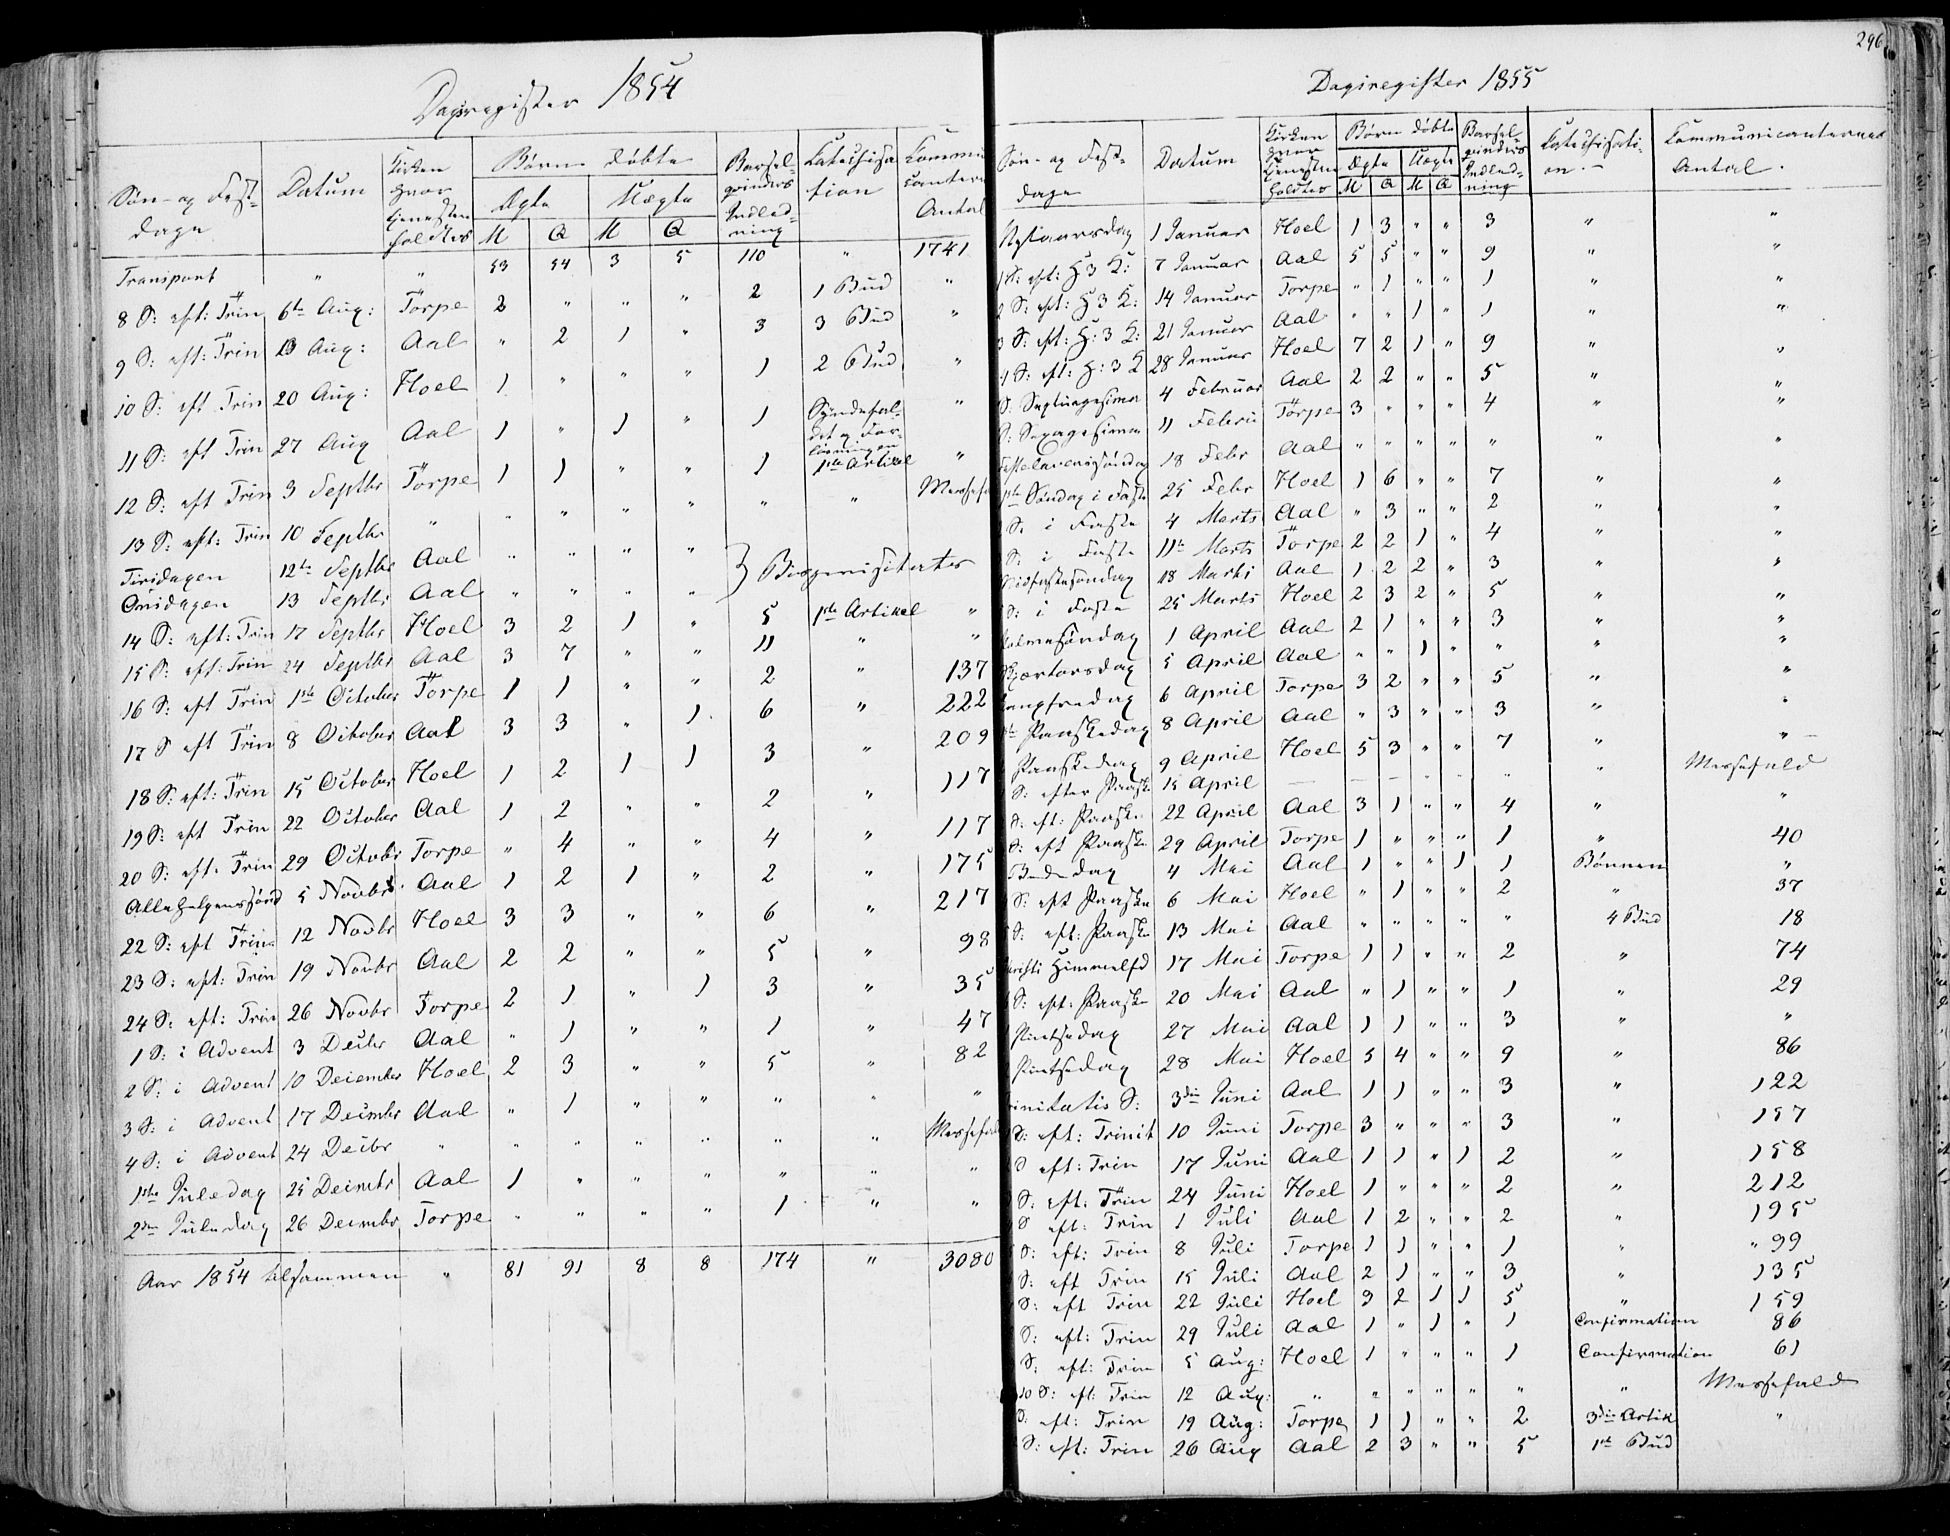 Dagsregister 1854
Søn- og Fest-dage | Datum | Kirken hvor Tjenesten holdtes | Børn døbte | Barsel-qvinders Indled-ning | Catechisa-tion | Communi-canternes Antal
Ægte | Uægte
M | Q | M | Q
Transport | " | " | 53 | 54 | 3 | 5 | 110 | " | 1741
8 S: eft: Trin | 6te Aug: | Torpe | 2 | " | " | " | 2 | 1 Bud | "
9 S: eft: Trin | 13 Aug: | Aal | " | 2 | 1 | " | 3 | 3 Bud | "
10 S: eft Trin | 20 Aug: | Hoel | 1 | " | " | " | 1 | 2 Bud | "
11 S: eft Trin | 27 Aug | Aal | 1 | " | 1 | " | 1 | Syndefal-det og For-løsningen | "
12 S: eft Trin | 3 Septbr | Torpe | 1 | 1 | " | " | 1 | 1ste Artikel | "
13 S: eft: Trin | 10 Septbr | " | " | " | " | " | " | " | Messefald
Tirsdagen | 12te Septbr | Aal | " | " | " | " | } Bispevisitats
Onsdagen | 13 Septbr | Aal | " | " | " | "
14 S: eft: Trin | 17 Septbr | Hoel | 3 | 2 | 1 | " | 5 | 1ste Artikel | "
15 S: eft: Trin | 24 Septbr | Aal | 3 | 7 | " | " | 11 | " | "
16 S: eft Trin | 1ste October | Torpe | 1 | 1 | " | " | 2 | " | 137
17 S eft Trin | 8 October | Aal | 3 | 3 | " | 1 | 6 | " | 222
18 S: eft: Trin | 15 October | Hoel | 1 | 2 | 1 | 1 | 3 | " | 209
19 S: eft Trin | 22 October | Aal | 1 | 2 | " | " | 2 | " | 117
20 S: eft. Trin | 29 Octobr | Torpe | " | 4 | " | " | 4 | " | 117
Allehelgenssønd | 5 Novbr. | Aal | 1 | 2 | 1 | " | 2 | " | 175
22 S: eft Trin | 12 Novbr | Hoel | 3 | 3 | " | " | 6 | " | 217
23 S: eft: Trin | 19 Novbr | Aal | 2 | 2 | " | " | 5 | " | 98
24 S: eft: Trin | 26 Novbr | Torpe | 2 | 1 | " | 1 | 3 | " | 35
1 S: i Advent | 3 Decbr | Aal | " | 1 | " | " | 1 | " | 47
2 S: i Advent | 10 December | Hoel | 2 | 3 | " | " | 5 | " | 82
3 S: i Advent | 17 Decmbr | Aal | " | 1 | " | " | " | " | "
4 S: i Advent | 24 Decbr | " | " | " | " | " | " | " | Messefald
1ste Juledag | 25 Decmbr | Aal | 1 | " | " | " | " | " | "
2den Juledag | 26 Decmbr | Torpe | " | " | " | " | 1 | " | "
Aar 1854 tilsammen | " | 81 | 91 | 8 | 8 | 174 | " | 3080
296
Dagsregister 1855
Søn- og Fest-dage | Datum | Kirken hvor Tjenesten holdtes | Børn døbte | Barsel-qvinders Indled-ning | Catechisati-on.- | Communicanternes Antal.
Ægte | Uægte
M | Q | M | Q
Nytaarsdag | 1 Januar | Hoel | 1 | 3 | " | " | 3 | " | "
1 S: eft: H 3 K: | 7 Januar | Aal | 5 | 5 | " | " | 9 | " | "
2 S: eft: H 3 K: | 14 Januar | Torpe | " | 1 | " | " | 1 | " | "
3 S: eft: H: 3 K: | 21 Januar | Aal | " | " | 1 | " | 1 | " | "
4 S: eft: H: 3 K | 28 Januar | Hoel | 7 | 2 | 1 | " | 9 | " | "
S: Septuagesima | 4 Februar | Aal | 2 | 2 | " | " | 5 | " | "
S: Sexagesima | 11 Febru | Torpe | 3 | " | " | " | 4 | " | "
Fastelavenssøndag | 18 Febr | Aal | " | " | " | " | " | " | "
1ste Søndag i Faste | 25 Febr | Hoel | 1 | 6 | " | " | 7 | " | "
S: i Faste | 4 Marts | Aal | " | 3 | " | " | 2 | " | "
S: i Faste | 11te Marts | Torpe | 2 | 2 | 1 | " | 4 | " | "
Midfastesøndag | 18 Marts | Aal | 1 | 2 | 2 | " | 3 | " | "
S: i Faste | 25 Marts | Hoel | 2 | 3 | 2 | " | 5 | " | "
Palmesøndag | 1 April | Aal | 2 | 1 | " | " | 3 | " | "
Skjærtorsdag | 5 April | Aal | " | " | 1 | " | " | " | "
Langfredag | 6 April | Torpe | 3 | 2 | " | " | 5 | " | "
Paaskedag | 8 April | Aal | " | 3 | " | " | 3 | " | "
Paaskedag | 9 April | Hoel | 5 | 3 | " | " | 7 | " | "
S: efter Paaske | 15 April | — | — | — | " | " | " | " | Messefald
S: eft: Paaske | 22 April | Aal | 3 | 1 | " | " | 4 | " | "
S: eft Paaske | 29 April | Torpe | 1 | " | " | " | 1 | " | 40
Bededag | 4 Mai | Aal | 1 | " | " | 1 | 1 | Bønnen | "
S: eft Paaske | 6 Mai | Hoel | " | 1 | " | " | 2 | " | 37
S: eft: Paaske | 13 Mai | Aal | " | " | " | " | " | 4 Bud | 18
Christi Himmelfd | 17 Mai | Torpe | 1 | 1 | " | " | 2 | " | 74
S: eft: Paaske | 20 Mai | Aal | " | 1 | " | " | 1 | " | 29
Pintsedag | 27 Mai | Aal | 1 | 1 | " | " | 3 | " | "
Pintsedag | 28 Mai | Hoel | 5 | 4 | " | " | 9 | " | 86
Trinitatis S: | 3die Juni | Aal | 1 | 1 | " | " | 3 | " | 122
S: eft: Trinit | 10 Juni | Torpe | 3 | " | " | " | 3 | " | 157
S eft: Trin | 17 Juni | Aal | 1 | 1 | " | 1 | 2 | " | 158
S: eft: Trin | 24 Juni | Hoel | 1 | " | " | " | 2 | " | 212
S eft: Trin | 1 Juli | Aal | 1 | 2 | " | " | 2 | " | 195
S: eft: Trin | 8 Juli | Torpe | 1 | 1 | " | " | 1 | " | " 99
S: eft Trin | 15 Juli | Aal | 2 | 1 | " | " | 3 | " | 135
S: eft Trin | 22 Juli | Hoel | 3 | 2 | 1 | 1 | 5 | " | 159
S: eft: Trin | 29 Juli | Aal | 1 | " | 1 | " | 1 | Confirmation | 86
S: eft: Trin | 5 Aug: | Hoel | 1 | " | " | " | 1 | Confirmation | 61
10 S: eft: Trin | 12 Aug: | " | " | " | " | " | " | " | Messefald
S: eft: Trin | 19 Aug: | Torpe | 1 | 1 | " | " | 2 | 3die Artik | "
S: eft: Trin | 26 Aug | Aal | 2 | 3 | " | " | 5 | 1ste Bud